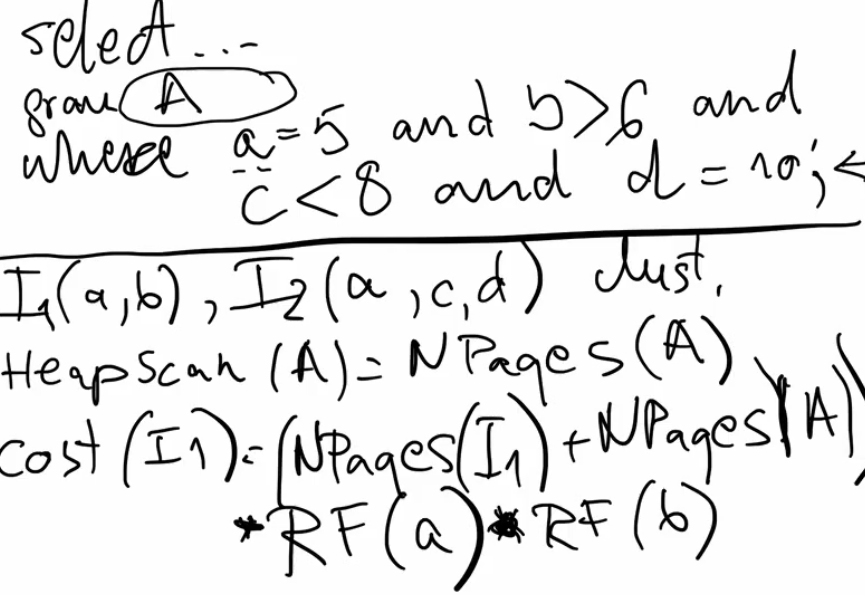 select ...
from A
where a = 5 and b > 6 and
c < 8 and d = 10; ←
I1(a,b), I2(a,c,d) clust.
HeapScan (A) = NPages(A)
cost (I1) = (NPages(I1) + NPages(A))
* RF(a) * RF(b)